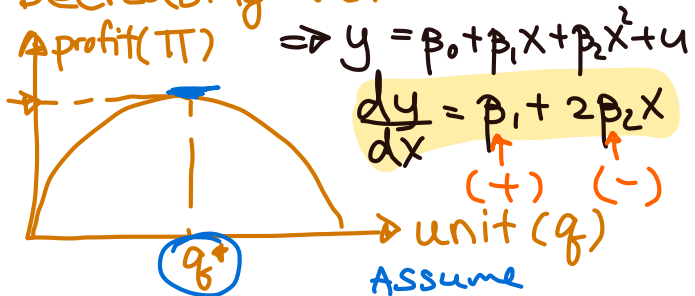 profit(π)
⇒ y = β₀+β₁x+β₂x²+u
dy/dx = β₁ + 2β₂x
(+) (-)
unit (q)
q*
Assume